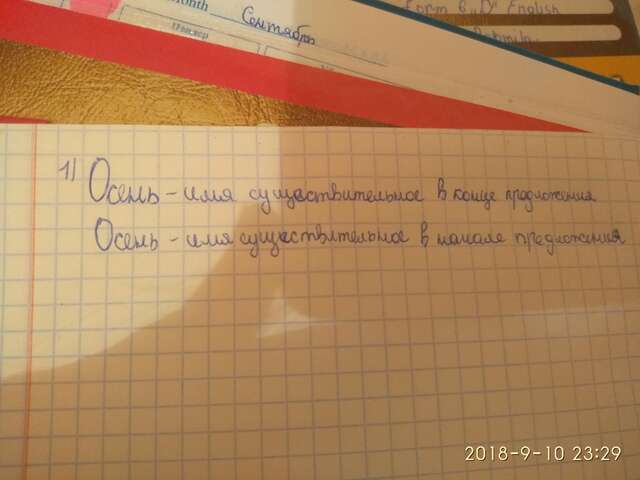 Month Сентябрь
Form 6 „D" English
1) Осень - имя существительное в конце предложения
Осень - имя существительное в начале предложения
2018-9-10 23:29